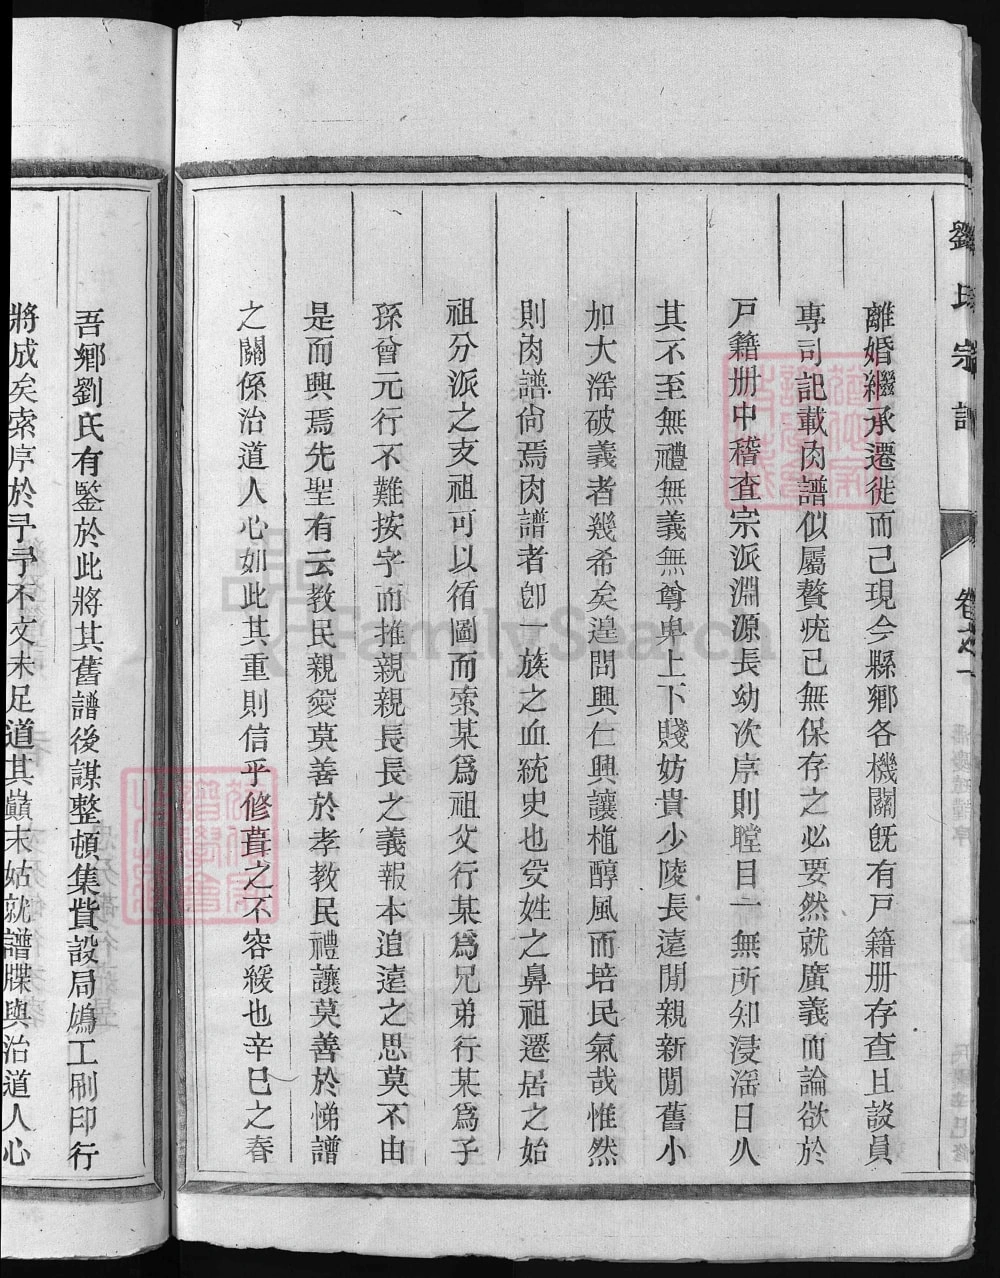 劉氏宗譜
卷之一
離婚繼承遷徙而已現今縣鄉各機關旣有戸籍册存查且設員
專司記載肉譜似屬贅疣已無保存之必要然就廣義而論欲於
戸籍册中稽查宗派淵源長幼次序則瞠目一無所知浸滛日久
其不至無禮無義無尊卑上下賤妨貴少陵長遠間親新間舊小
加大滛破義者幾希矣遑問興仁興讓植醇風而培民氣哉惟然
則肉譜尙焉肉譜者卽一族之血統史也受姓之鼻祖遷居之始
祖分派之支祖可以循圖而索某爲祖父行某爲兄弟行某爲子
孫曾元行不難按字而推親親長長之義報本追遠之思莫不由
是而興焉先聖有云教民親愛莫善於孝教民禮讓莫善於悌譜
之關係治道人心如此其重則信乎修葺之不容緩也辛巳之春
吾鄉劉氏有鑒於此將其舊譜後謀整頓集貲設局鳩工刷印行
將成矣索序於予予不文未足道其巔末姑就譜牒與治道人心
FamilySearch